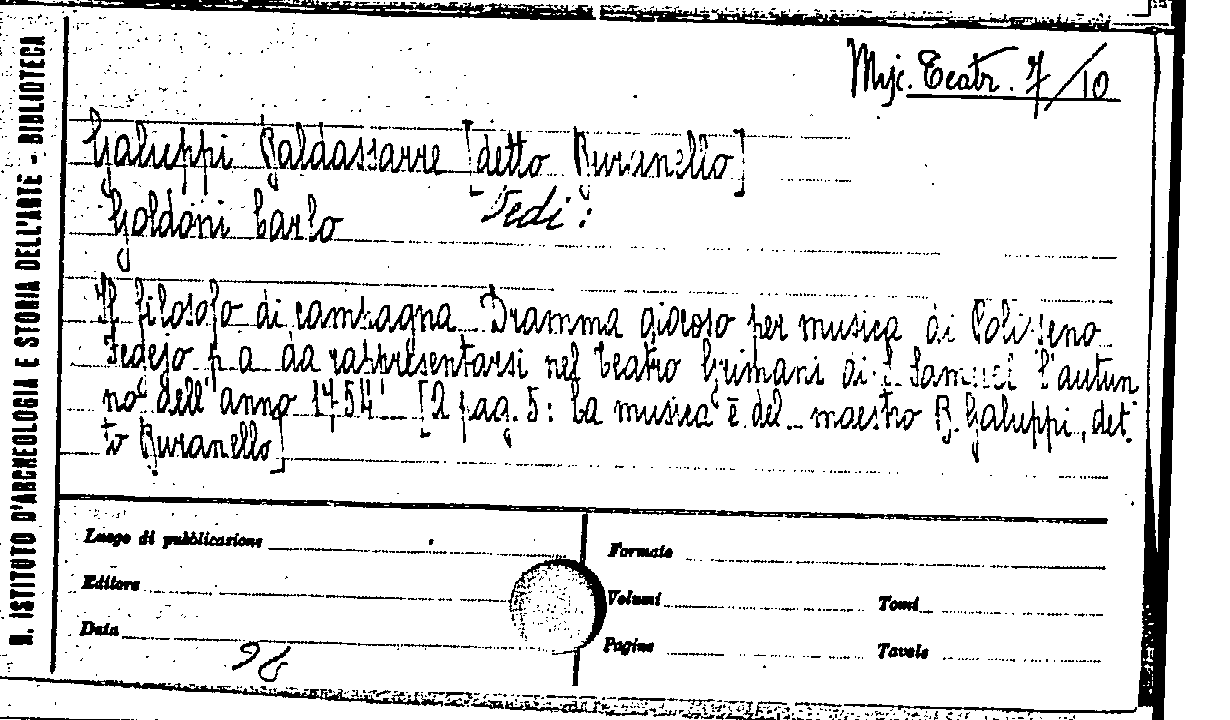 R. ISTITUTO D'ARCHEOLOGIA E STORIA DELL'ARTE - BIBLIOTECA
Misc. Teatr. 7/10
Galuppi Baldassarre [detto Buranello]
Goldoni Carlo Vedi:
Il filosofo di campagna. Dramma giocoso per musica di Polisseno
Fedejo p. a. da rappresentarsi nel teatro Grimani di S. Samuel l'autun
no dell'anno 1754. [2 pag. 5: la musica è del maestro B. Galuppi, det.
to Buranello]
Luogo di pubblicazione
Formato
Editore
Volumi
Tomi
Data
Pagine
Tavole